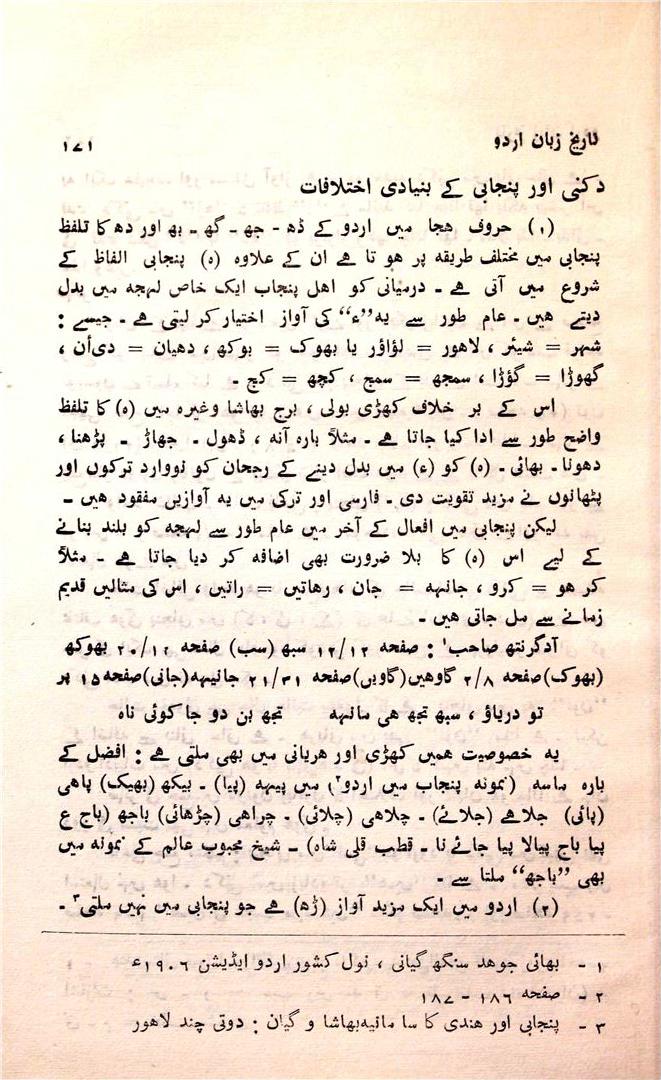 تاریخ زبان اردو
۱۷۱
دکنی اور پنجابی کے بنیادی اختلافات
(۱) حروف ہجا میں اردو کے ڈھ ۔ جھ ۔ گھ ۔ بھ اور دھ کا تلفظ
پنجابی میں مختلف طریقہ پر ہوتا ہے ان کے علاوہ (ہ) پنجابی الفاظ کے
شروع میں آتی ہے ۔ درمیانی کو اہل پنجاب ایک خاص لہجہ میں بدل
دیتے ہیں ۔ عام طور سے یہ ’’ء‘‘ کی آواز اختیار کر لیتی ہے ۔ جیسے :
شہر = شیئر ، لاہور = لؤاؤر یا بھوک = بوکھ ، دھیان = دیأن ،
گھوڑا = گؤڑا ، سمجھ = سمج ، کچھ = کچ ۔
اس کے بر خلاف کھڑی بولی ، برج بھاشا وغیرہ میں (ہ) کا تلفظ
واضح طور سے ادا کیا جاتا ہے ۔ مثلاً بارہ آنہ ، ڈھول ۔ جھاڑ ۔ پڑھنا ،
دھونا ۔ بھائی ۔ (ہ) کو (ء) میں بدل دینے کے رجحان کو نووارد ترکوں اور
پٹھانوں نے مزید تقویت دی ۔ فارسی اور ترکی میں یہ آوازیں مفقود ہیں ۔
لیکن پنجابی میں افعال کے آخر میں عام طور سے لہجہ کو بلند بنانے
کے لیے اس (ہ) کا بلا ضرورت بھی اضافہ کر دیا جاتا ہے ۔ مثلاً
کرہو = کرو ، جانہہ = جان ، رھاتیں = راتیں ، اس کی مثالیں قدیم
زمانے سے مل جاتی ہیں ۔
آدگرنتھ صاحب۱ : صفحہ ۱۲/۱۲ سبھ (سب) صفحہ ۲۰/۱۲ بھوکھ
(بھوک) صفحہ ۲/۸ گاوھیں (گاویں) صفحہ ۲۱/۳۱ جانیہہ (جانی) صفحہ ۱۵ پر
تو دریاؤ ، سبھ تجھ ہی مانہہ تجھ بن دو جا کوئی ناہ
یہ خصوصیت ہمیں کھڑی اور ہریانی میں بھی ملتی ہے : افضل کے
بارہ ماسہ (نمونہ پنجاب میں اردو۲) میں پیہہ (پیا) ۔ بیکھ (بھیک) پاہی
(پائی) جلاہے (جلائے) ۔ چلاہی (چلائی) ۔ چراہی (چڑھائی) باجھ (باج ع
پیا باج پیالا پیا جائے نا ۔ قطب قلی شاہ) ۔ شیخ محبوب عالم کے نمونہ میں
بھی ’’باجھ‘‘ ملتا ہے ۔
(۲) اردو میں ایک مزید آواز (ڑھ) ہے جو پنجابی میں نہیں ملتی۳ ۔
۱ ۔ بھائی جوھد سنگھ گیانی ، نول کشور اردو ایڈیشن ۱۹۰۶ء
۲ ۔ صفحہ ۱۸۶ ۔ ۱۸۷
۳ ۔ پنجابی اور ہندی کا سا مانیہ بھاشا و گیان : دوتی چند لاہور